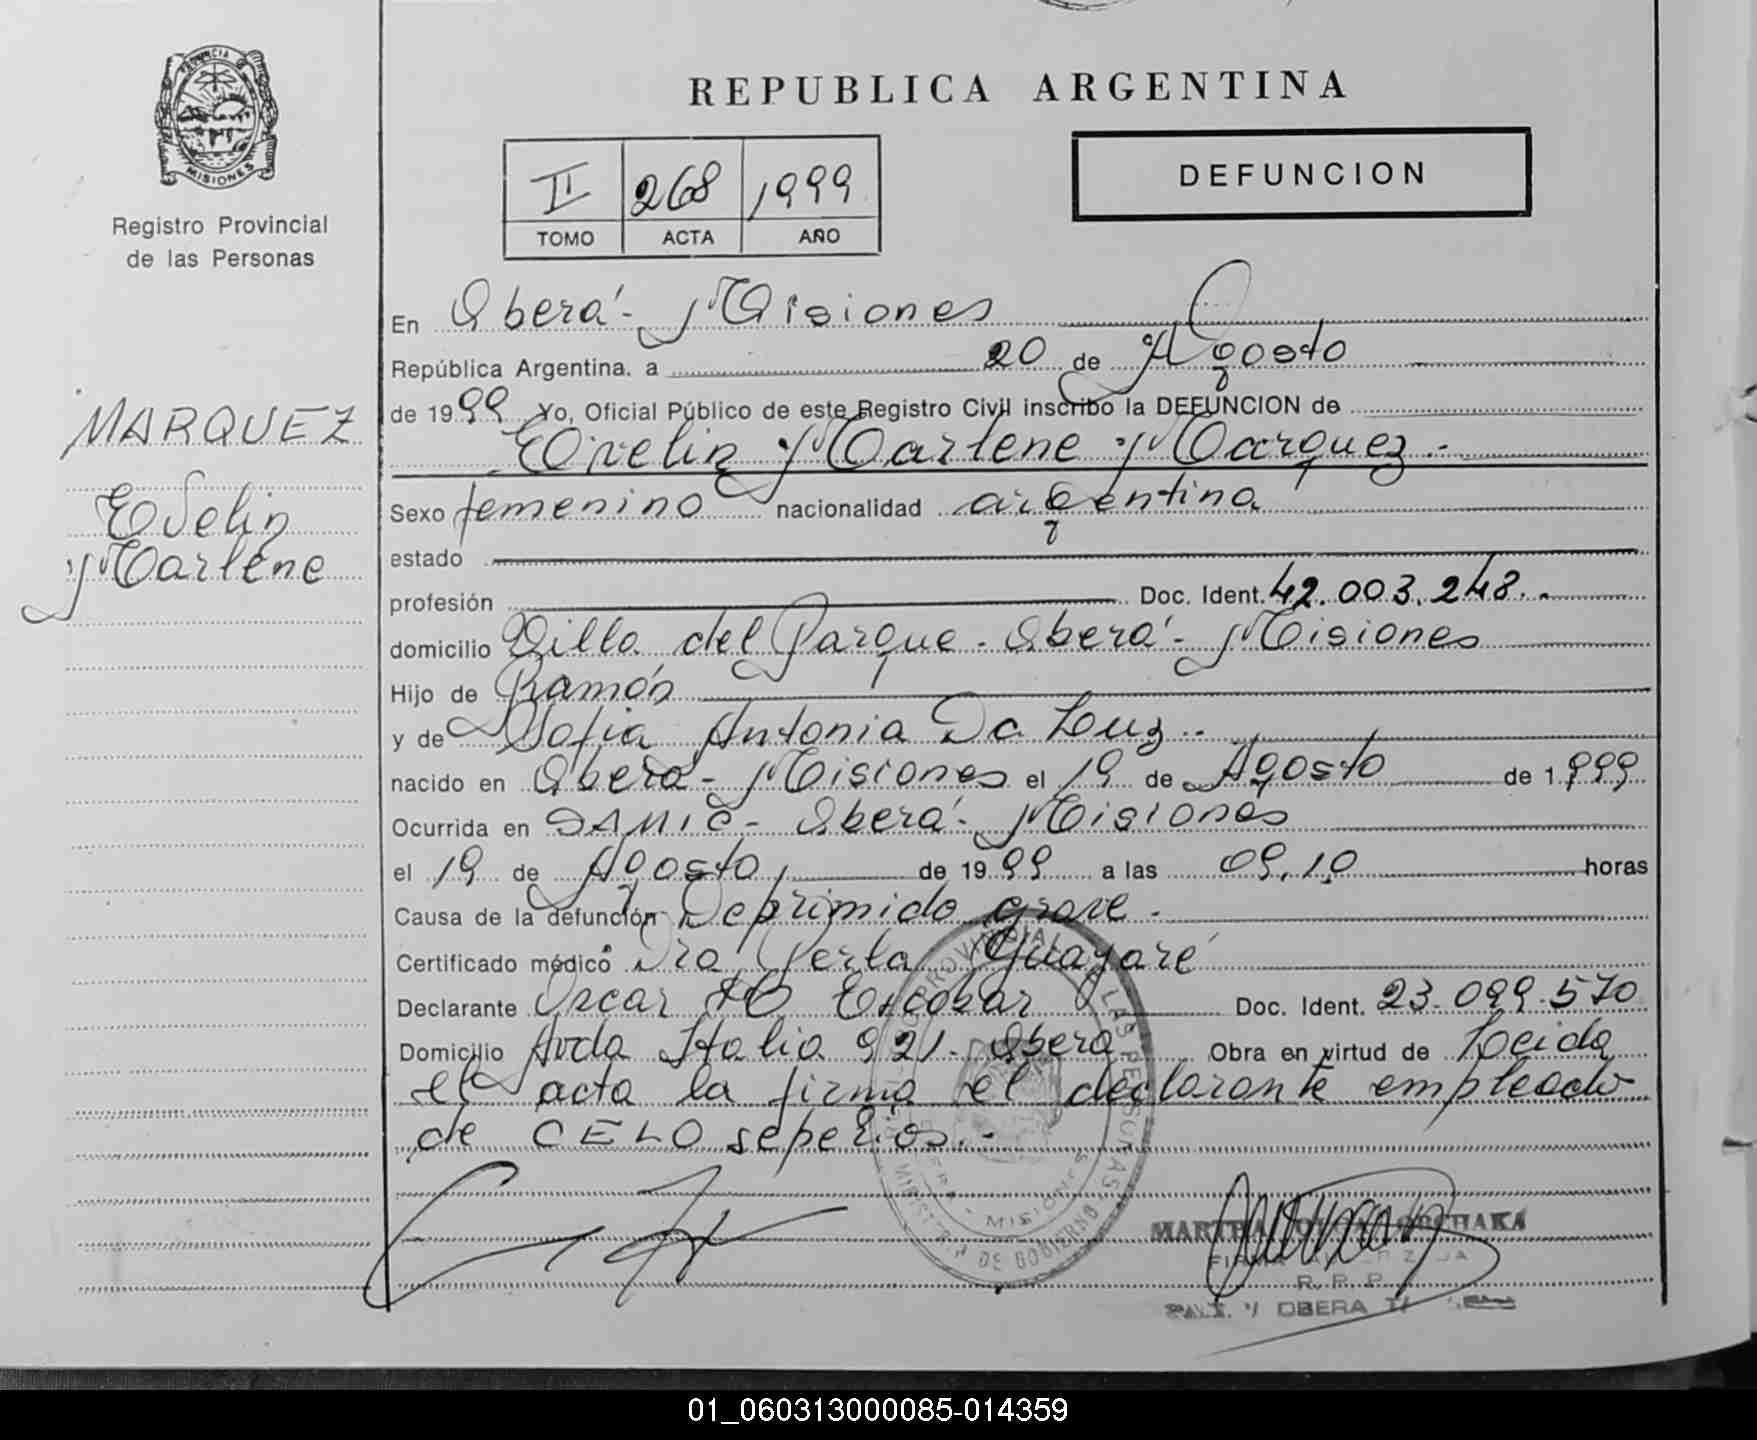 PROVINCIA DE
MISIONES
Registro Provincial
de las Personas
REPUBLICA ARGENTINA
II 268 1999
TOMO ACTA AÑO
DEFUNCION
En Oberá - Misiones
República Argentina. a 20 de Agosto
de 1999 Yo, Oficial Público de este Registro Civil inscribo la DEFUNCION de
Evelin Marlene Marquez.-
MARQUEZ
Evelin
Marlene
Sexo femenino nacionalidad argentina
estado
profesión Doc. Ident. 42.003.248.-
domicilio Villa del Parque - Oberá - Misiones
Hijo de Ramón
y de Sofia Antonia Da Luz.-
nacido en Oberá - Misiones el 19 de Agosto de 1.999
Ocurrida en SAMIC - Oberá - Misiones
el 19 de Agosto de 1999 a las 09,10 horas
Causa de la defunción Deprimido grave.-
Certificado médico Dra Perla
Declarante Oscar Escobar Doc. Ident. 23.099.570
Domicilio Avda Italia 921. Oberá Obra en virtud de Leida
el acta la firma el declarante empleado
de CELO sepelios.-
MISIONES
MINISTERIO DE GOBIERNO
LAS PERSONAS
MARTHA
R. P. P.
OBERA
01_060313000085-014359